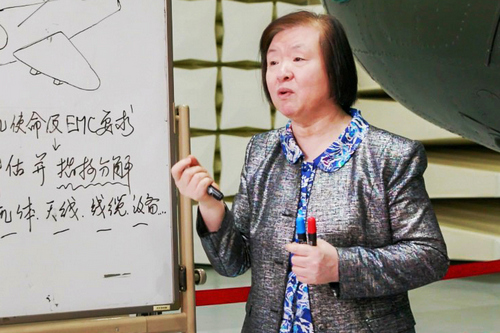 使命及EMC要求
估并 指标分解
机体.天线.线缆.设备...